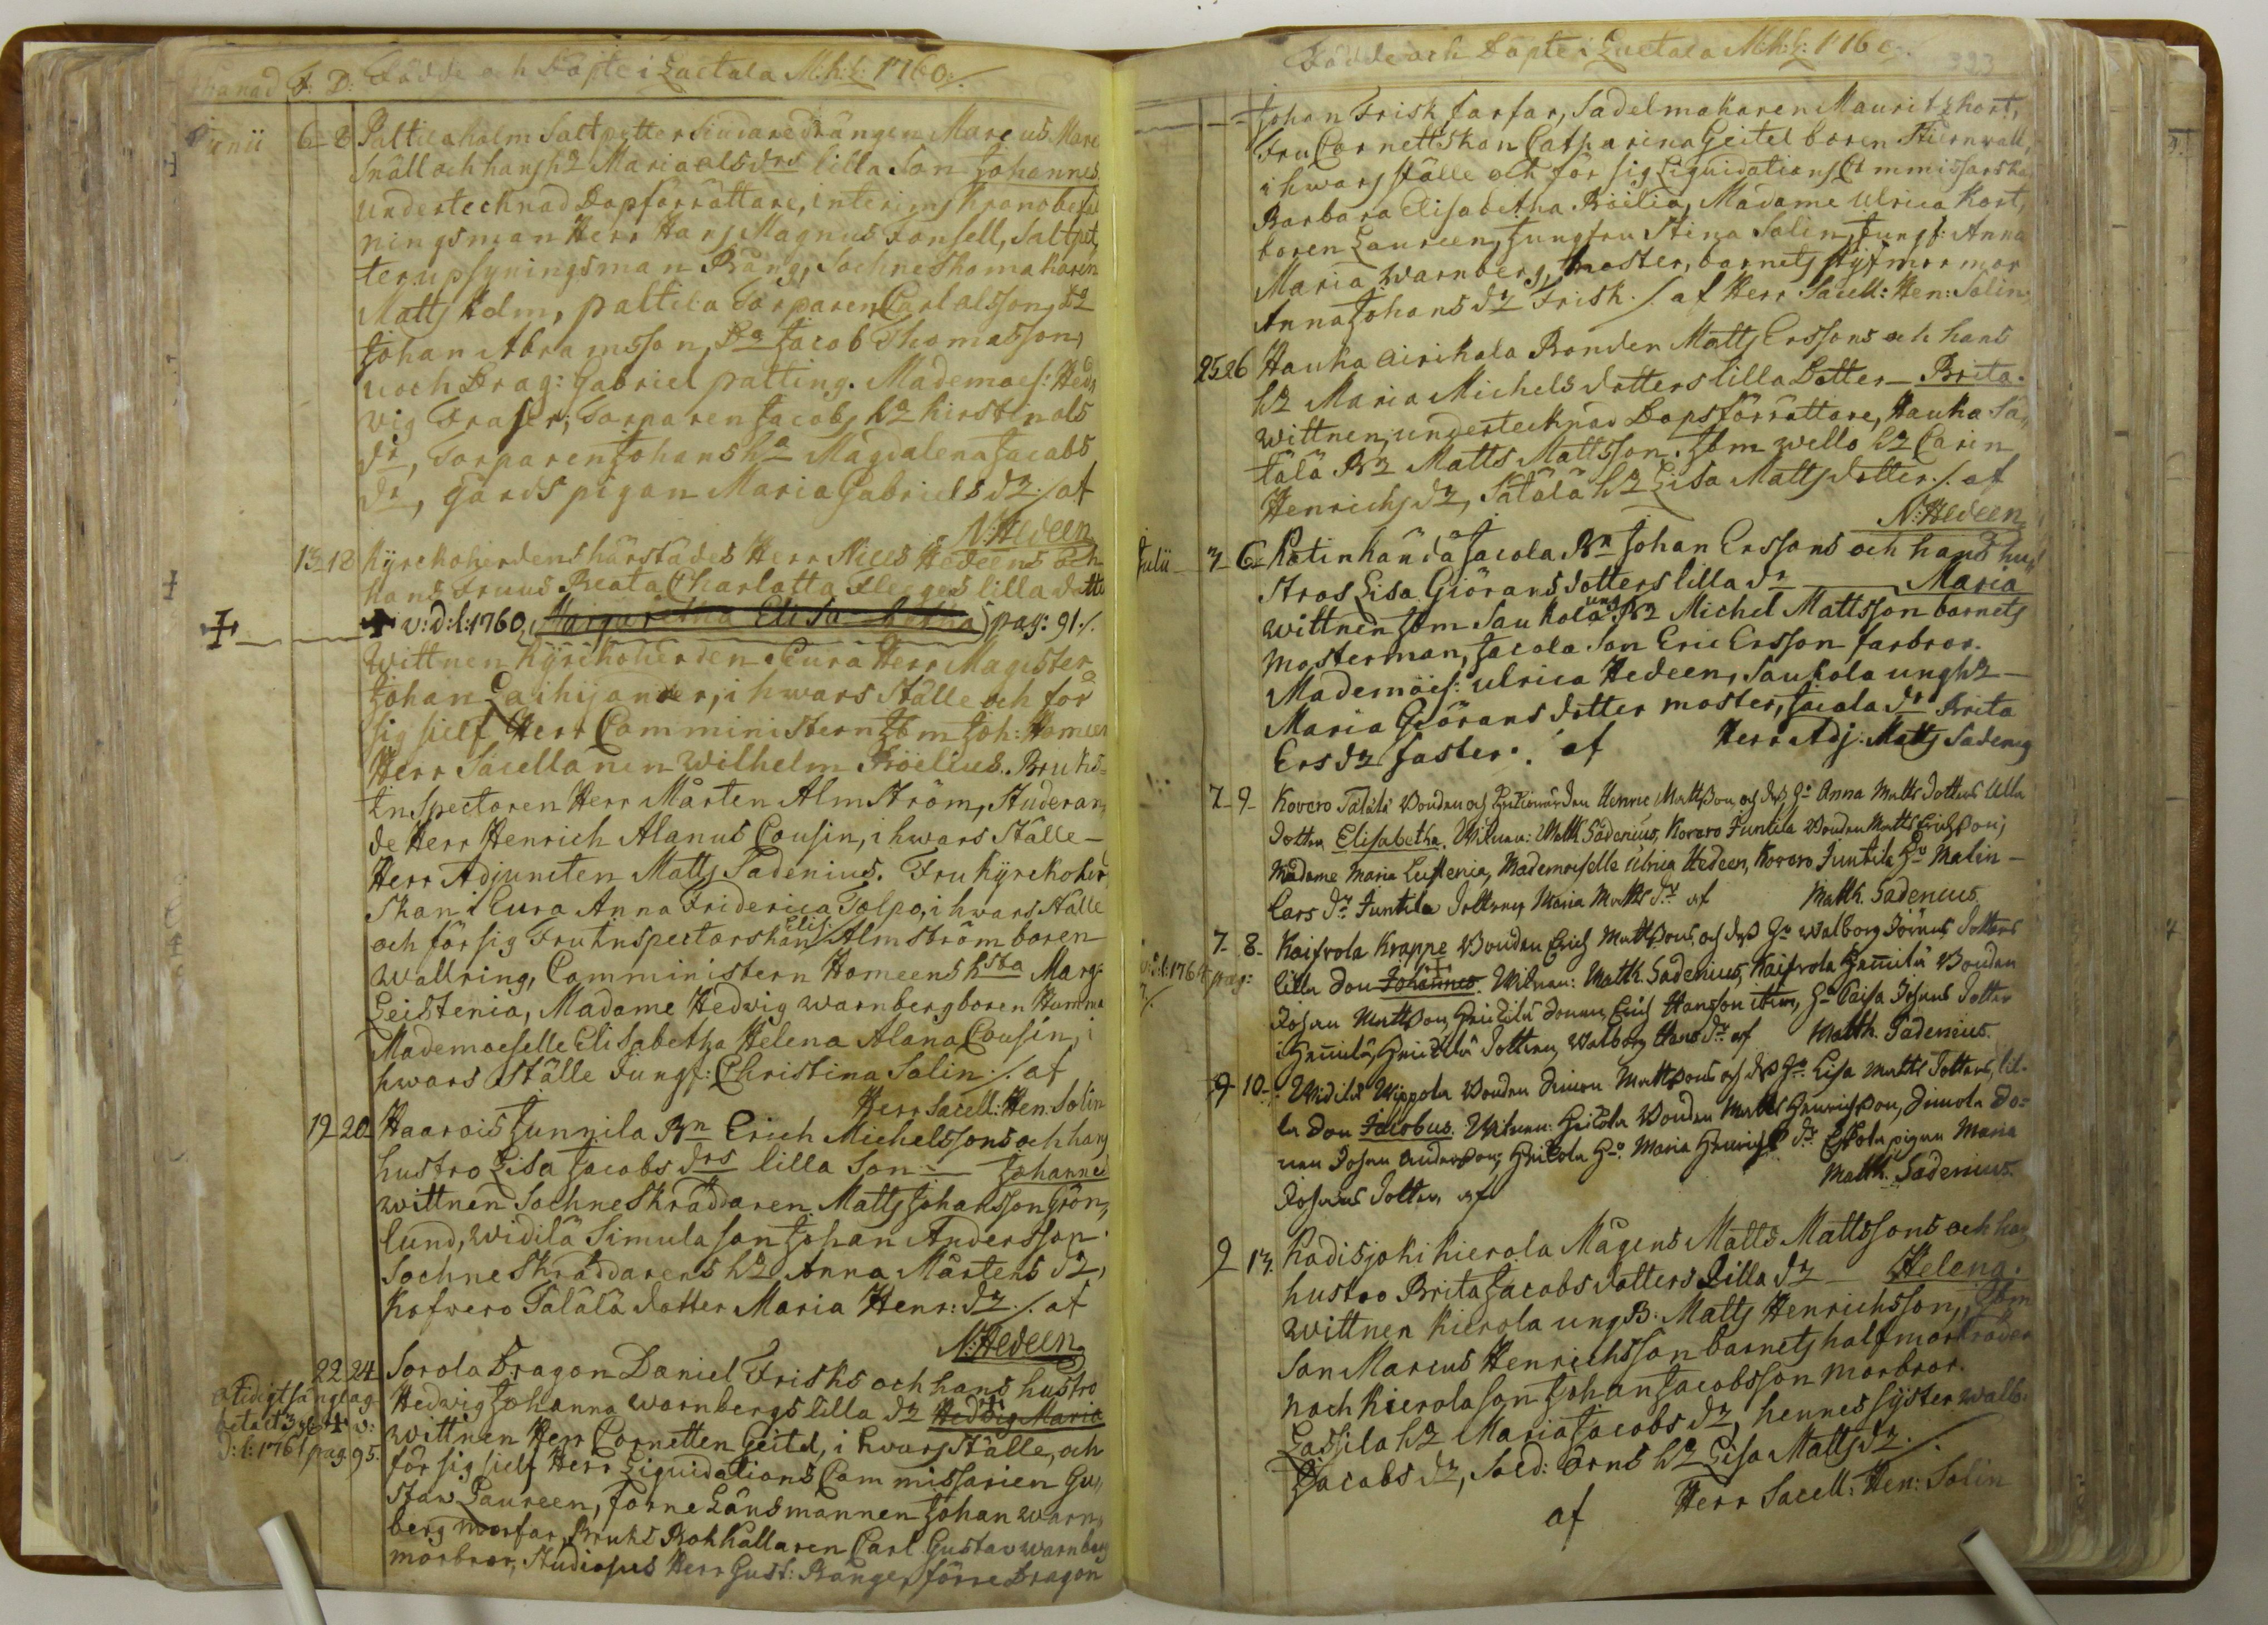 Månad F: D: Födde och Döpte i Luctala M:k:L: 1760 ./.
Junii 6 8 Paltila holm Saltpettersiudaredrängen Marcus Marc
Snäll och hans h? Maria als drs lilla Son Johannes
undertecknad Dopförrättare, interims Kronobefal
ningsman Herr Hans Magnus Fonsell, Saltpet,
terupsyningsman Bång, Sochneskomakaren
Matts Holm, paltila Torparen Carl alsson, Do
Johan Abramsson, Do Jacob Thomasson,
noch Drag: Gabriel palting. Mademoes: Hed,
vig Fraser, Torparen Jacobs ha Kirstin als
dr, Torparen Johans ha Magdalena Jacobs
dr, gårdspigan Maria Gabriels dr ./. af
N: Hedeen
13 18 Kyrckoherdens härstädes Herr Nicls Hedeens och
Hans Fruus Beata Charlotta Fleeges lilla dotte
v: d: l: 1760 Margaretha Elisabetha pag: 91 ./.
Wittnen Kyrckoherden i Eura Herr Magister
Johan Laihijander, i hwars ställe och för
sig sielf Herr Comministern Jbm Joh: Homeen
Herr Sacellanen Wilhelm Pröelius. Bruks=
Inspectoren Herr Mårten Almström, Studeran,
de Herr Henrich Alanus Cousin, i hwars ställe –
Herr Adjuncten Matts Sadenius. Fru Kyrckoher,
skan i Eura Anna Friderica Tolpo, i hwars ställe
och för sig Fru Inspectorskan Elis Almström boren
Wallring, Comministern Homeens hsta Marg:
Leistenia, Madame Hedvig Warnberg boren Humma
Mademoeselle Elisabetha Helena Alana Cousin, i
hwars ställe Jungf: Christina Salin ./. af
Herr Sacell: Hen: Solin
19 20 Haarois Junnila Bn Erich Michelssons och hans
hustro Lisa Jacobs drs lilla Son – Johannes
Wittnen Sochneskräddaren Matts Johansson Grön,
lund, Widilä Simula son Johan Andersson
Sochneskräddarens h2 Anna Mårtens dr,
Kofwero Talälä dotter Maria Henr: dr ./. af
N: Hedeen
22 24 Sorola Dragon Daniel Frisks och hans hustro
otidigt sänglag Hedvig Johanna Warnbergs lilla dr Hedvig Maria
betalt v: Wittnen Herr Cornetten Geitel, i hwars ställe, och
d: l: 1761 pag. 95. för sig sielf Herr Liquidations Commissarien Gu,,
staw Laureen, förne Länsmannen Johan Warn,
berg morfar, Bruks Bokhållaren Carl Gustav Warnberg
morbror, Studiosus Herr Gust: Bånge, förre Dragon
Födde och Döpte i Luctala M:k:L: 1760. 323
Johan Frisk farfar, Sadelmakaren Maurits Kort,
Fru Cornettskan Catharina Geitel boren Stiernvall,
i hwars ställe och för sig Liquidations Commissarska
Barbara Elisabetha Pröelia, Madame Ulrica Kort,
boren Laureen, Jungfru Stina Salin, Jungf: Anna
Maria Warnberg, moster, barnets styfmormor
Anna Johans dr Frisk ./. af Herr Sacell: Hen: Solin
25 26 Hauka airikala Bonden Matts Erssons och hans
h2 Maria Michels dotters lilla Dotter – Brita.
Wittnen, undertecknad Dopsförrättare, Hauka Sä,,
tälä Bn Matts Mattsson. Jbm wello h2 Carin
Henrichs dr, Sätälä h2 Lisa Matts dotter ./. af
N: Hedeen
Julii 3 6 Kotinkända Jacola Bn Johan Erssons och hans hu,,
stros Lisa Giörans dotters lilla dr – Maria
wittnen Jbm Saukola ung Bn Michel Mattsson barnets
mosterman, Jacola Son Eric Ersson farbror.
Mademöes: Ulrica Hedeen, Saukola ungh2 –
Maria Giörans dotter moster, Jacola dr Brita
Ers dr faster. af Herr Adj: Matts Sadenius
7 9 Kovero Talälä Bonden och Inhemården Henric Mattssons och dess Ho Anna Matts dotters lilla
dotter Elisabetha. Witnen: Matth. Sadenius, Kovero Juntila Bonden Matts Erichsson,
Madame Maria Leistenia, Mademoiselle Ulrica Hedeen, Kovero Juntila Ho Malin –
Lars dr Juntila dottren Maria Matts dr af Matth. Sadenius.
v: d: l: 1764 pag: 7 8 Kaisrola Krappe Bonden Erich Mattssons, och dess Ho Walborg Jörans dotters
lilla Son Johannes. Witnen: Matth. Sadenius, Kaisrola Hennilä Bonden
Johan Mattsson, Heickilä Sonen, Erich Hansson item, Ho Caisa Johans dotter
i Hennilä, Heickilä dottren Walborg Hans dr af Matth. Sadenius.
9 10 Widilä Wippola Bonden Simon Mattssons och dess Ho Lisa Matts dotters lil-
la Son Jacobus. Witnen: Heikola Bonden Matts Henrichsson, Simola So=
nen Johan Andersson, Heikola Ho Maria Henrichs dr Eskola pigan Maria
Johans dotter af Matth. Sadenius.
9 13 Kadisjoki Kierola Mågens Matts Mattssons och hans
hustro Brita Jacobs dotters Lilla dr – Helena.
Wittnen Kierola ung B: Matts Henrichsson, Jbm
Son Marcus Henrichsson barnets half morbröder
noch Kierola son Johan Jacobsson morbror.
Lassila h2 Maria Jacobs dr, hennes syster Walb:
Jacobs dr, Sold: Örns h2 Lisa Matts dr ./.
af Herr Sacell: Hen: Solin